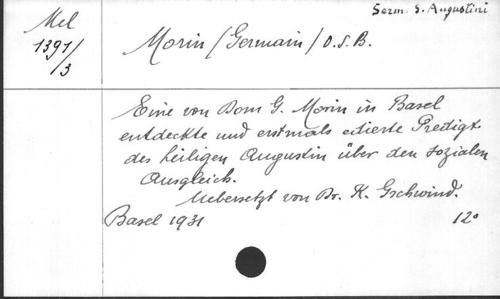 Serm. S. Augustini
Mel
1391/3
Morin / Germain / O.S.B.
Eine von Dom G. Morin in Basel
entdeckte und erstmals edierte Predigt
des heiligen Augustin über den sozialen
Ausgleich.
Uebersetzt von Dr. K. Gschwind.
Basel 1931
12°